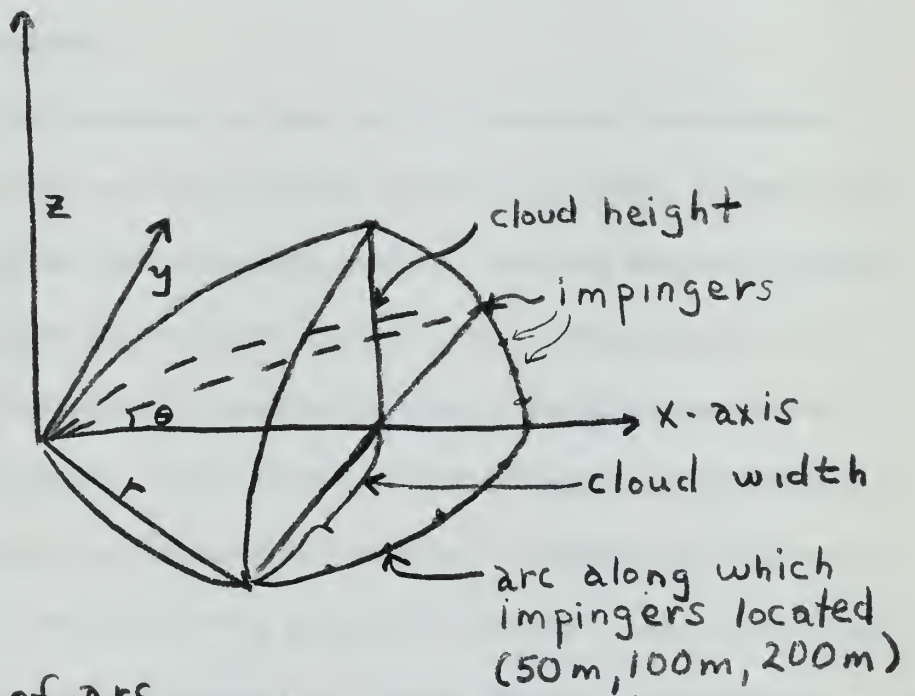 z
y
cloud height
impingers
θ
x-axis
r
cloud width
arc along which
impingers located
(50m, 100m, 200m)
of arc